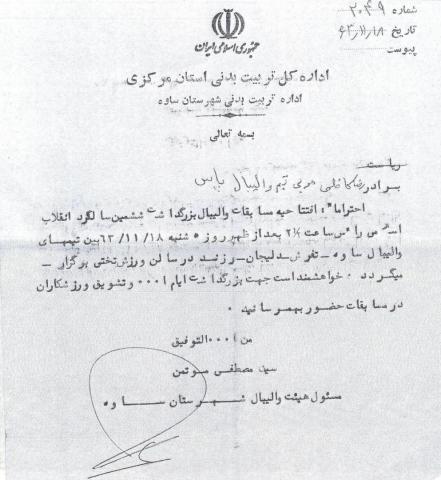 شماره ۲۰۴۹
تاریخ ۶۳/۱۱/۱۸
پیوست
جمهوری اسلامی ایران
اداره کل تربیت بدنی استان مرکزی
اداره تربیت بدنی شهرستان ساوه
بسمه تعالی
ریاست
برادر رضا کاظمی مربی تیم والیبال پاس
احتراما": افتتاحیه مسابقات والیبال بزرگداشت ششمین سالگرد انقلاب
راس ساعت ۲/۵ بعد از ظهر روز ه شنبه ۶۳/۱۱/۱۸ بین تیمهای
والیبال ساوه – تفرش – دلیجان – زرند در سالن ورزش تختی برگزار –
میگردد ۰ خواهشمند است جهت بزرگداشت ایام ا۰۰۰ و تشویق ورزشکاران
در مسابقات حضور بهمرسانید ۰
من ا۰۰۰ التوفیق
سید مصطفی موتمن
مسئول هیئت والیبال شهرستان ســاوه